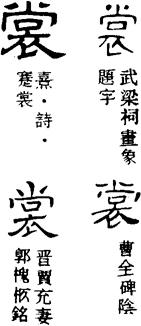 裳
武梁祠畫象
題字
裳
熹・詩・
褰裳
裳
曹全碑陰
裳
晉賈充妻
郭槐柩銘